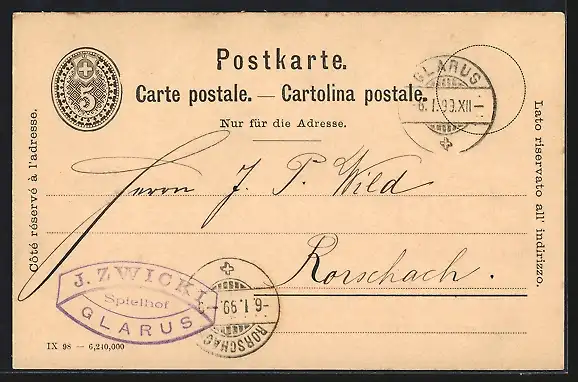 Postkarte.
Carte postale. — Cartolina postale.
Nur für die Adresse.
5
GLARUS
6.1.99.XII
Côté réservé à l'adresse.
Lato riservato all' indirizzo.
Herrn J. P. Wild
Rorschach.
J. ZWICKI
Spielhof
GLARUS
-6.1.99.-
RORSCHACH
IX 98 — 6,240,000